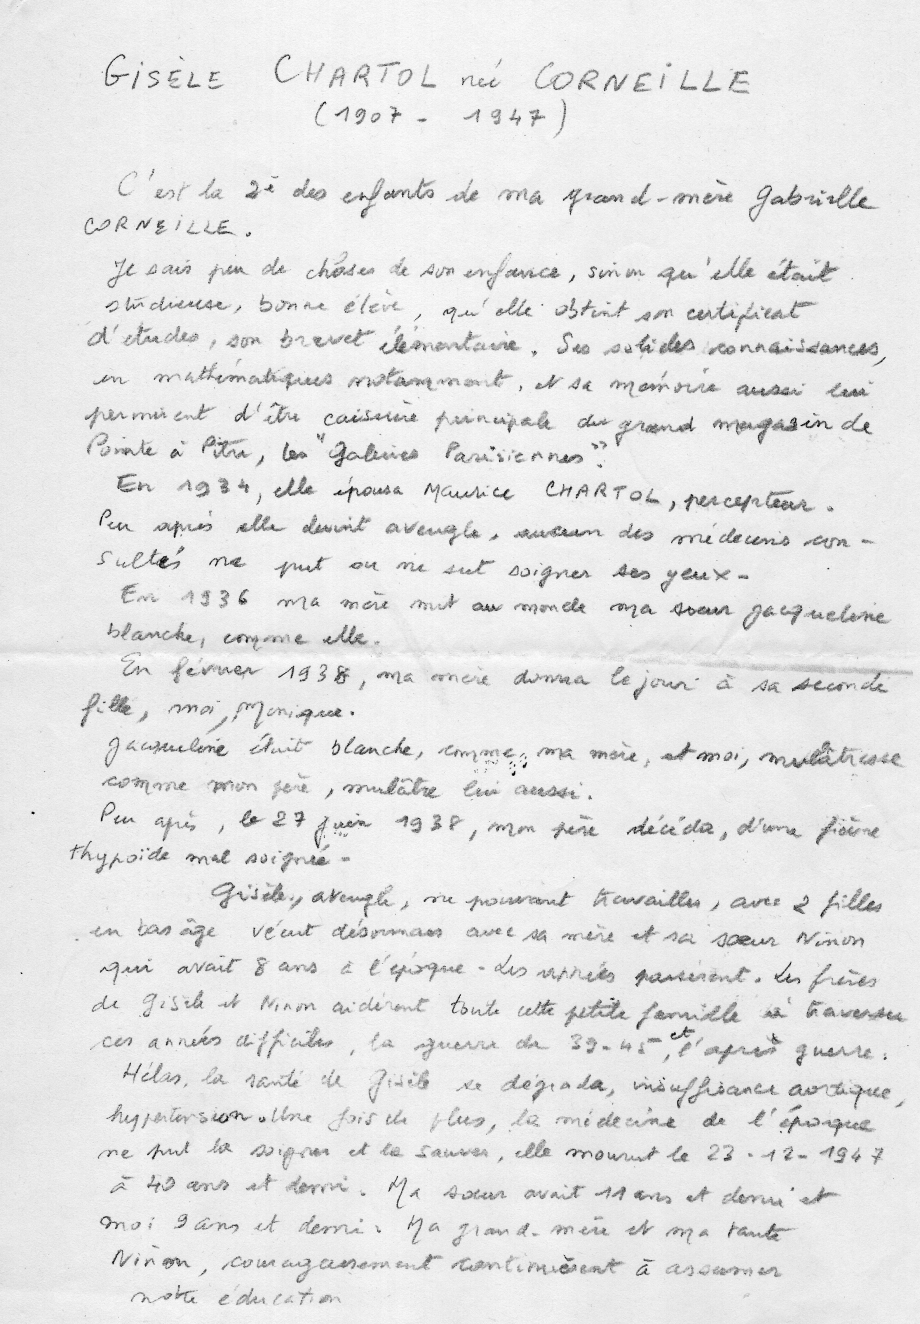 GISÈLE CHARTOL née CORNEILLE
(1907 - 1947)
C'est la 2è des enfants de ma grand-mère Gabrielle
CORNEILLE.
Je sais peu de choses de son enfance, sinon qu'elle était
studieuse, bonne élève, qu'elle obtint son certificat
d'etudes, son brevet élémentaire. Ses solides connaissances,
en mathématiques notamment, et sa mémoire aussi lui
permirent d'être caissière principale du grand magasin de
Pointe à Pitre, les "Galeries Parisiennes".
En 1934, elle épousa Maurice CHARTOL, percepteur.
Peu après elle devint aveugle, aucun des médecins con-
sultés ne put ou ne sut soigner ses yeux-
En 1936 ma mère mit au monde ma sœur Jacqueline
blanche, comme elle.
En février 1938, ma mère donna le jour à sa seconde
fille, moi, Monique.
Jacqueline était blanche, comme ma mère, et moi, mulâtresse
comme mon père, mulâtre lui aussi.
Peu après, le 27 juin 1938, mon père décéda, d'une fièvre
thypoïde mal soignée-
Gisèle, aveugle, ne pouvant travailler, avec 2 filles
en bas âge vécut désormais avec sa mère et sa sœur Ninon
qui avait 8 ans à l'époque - Les années passèrent. Les frères
de Gisèle et Ninon aidèrent toute cette petite famille à traverser
ces années difficiles, la guerre de 39-45, et l'après guerre.
Hélas, la santé de Gisèle se dégrada, insuffisance aortique,
hypertension. Une fois de plus, la médecine de l'époque
ne put la soigner et la sauver, elle mourut le 23-12-1947
à 40 ans et demi. Ma sœur avait 11 ans et demi et
moi 9 ans et demi. Ma grand-mère et ma tante
Ninon, courageusement continuèrent à assumer
notre éducation